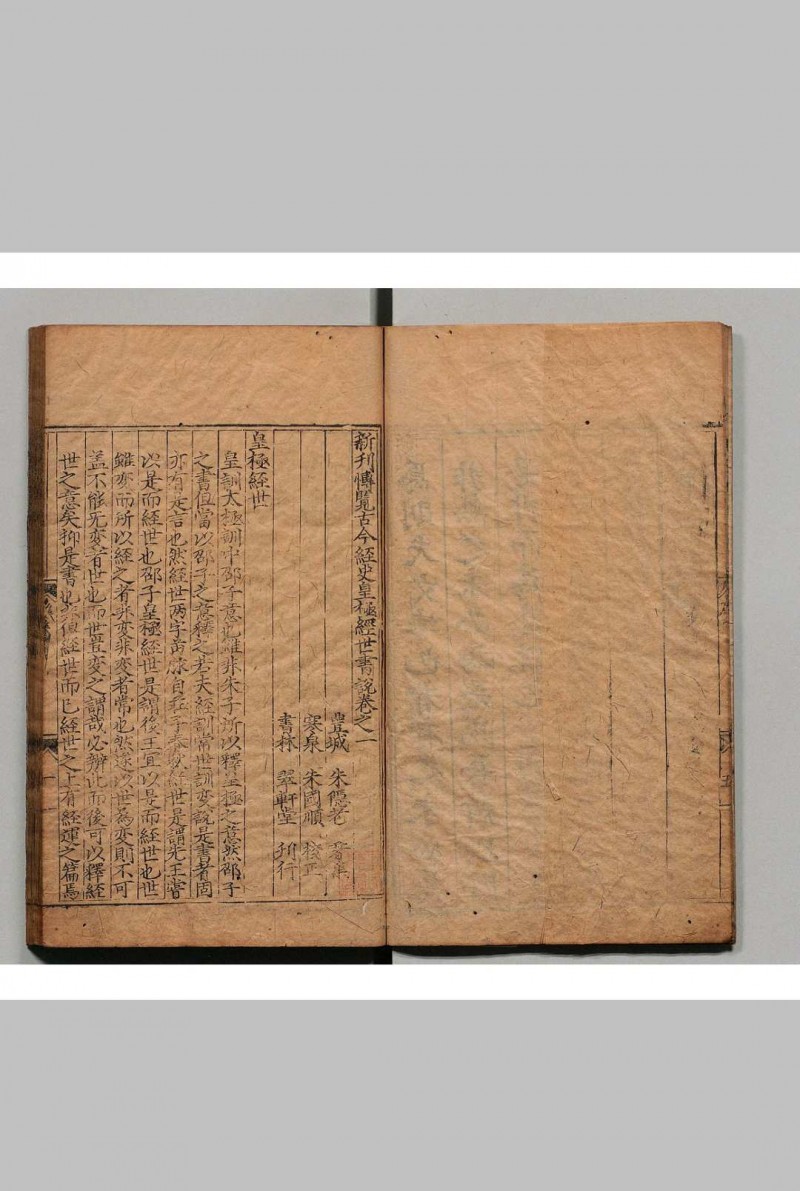 新刊博覽古今經史皇極經世書說卷之一
豊城 朱隱老
寒泉 朱國順 校正
書林 翠軒堂 刋行
皇極經世
皇訓大極訓中邵子意也雖非朱子所以釋皇極之意然邵子
之書但當以邵子之意釋之若夫經訓常世訓变說是書者固
亦有是言也然經世两字音脉自莊子春秋經世是謂先王嘗
以是而經世也邵子皇極經世是謂後王宜以是而經世也世
雖变而所以經之者非变非变者常也然遂以世為变則不可
盖不能无变者世也而世豈变之謂哉必辨此而後可以釋經
世之意矣抑是書也非但經世而已經世之上有經運之篇焉